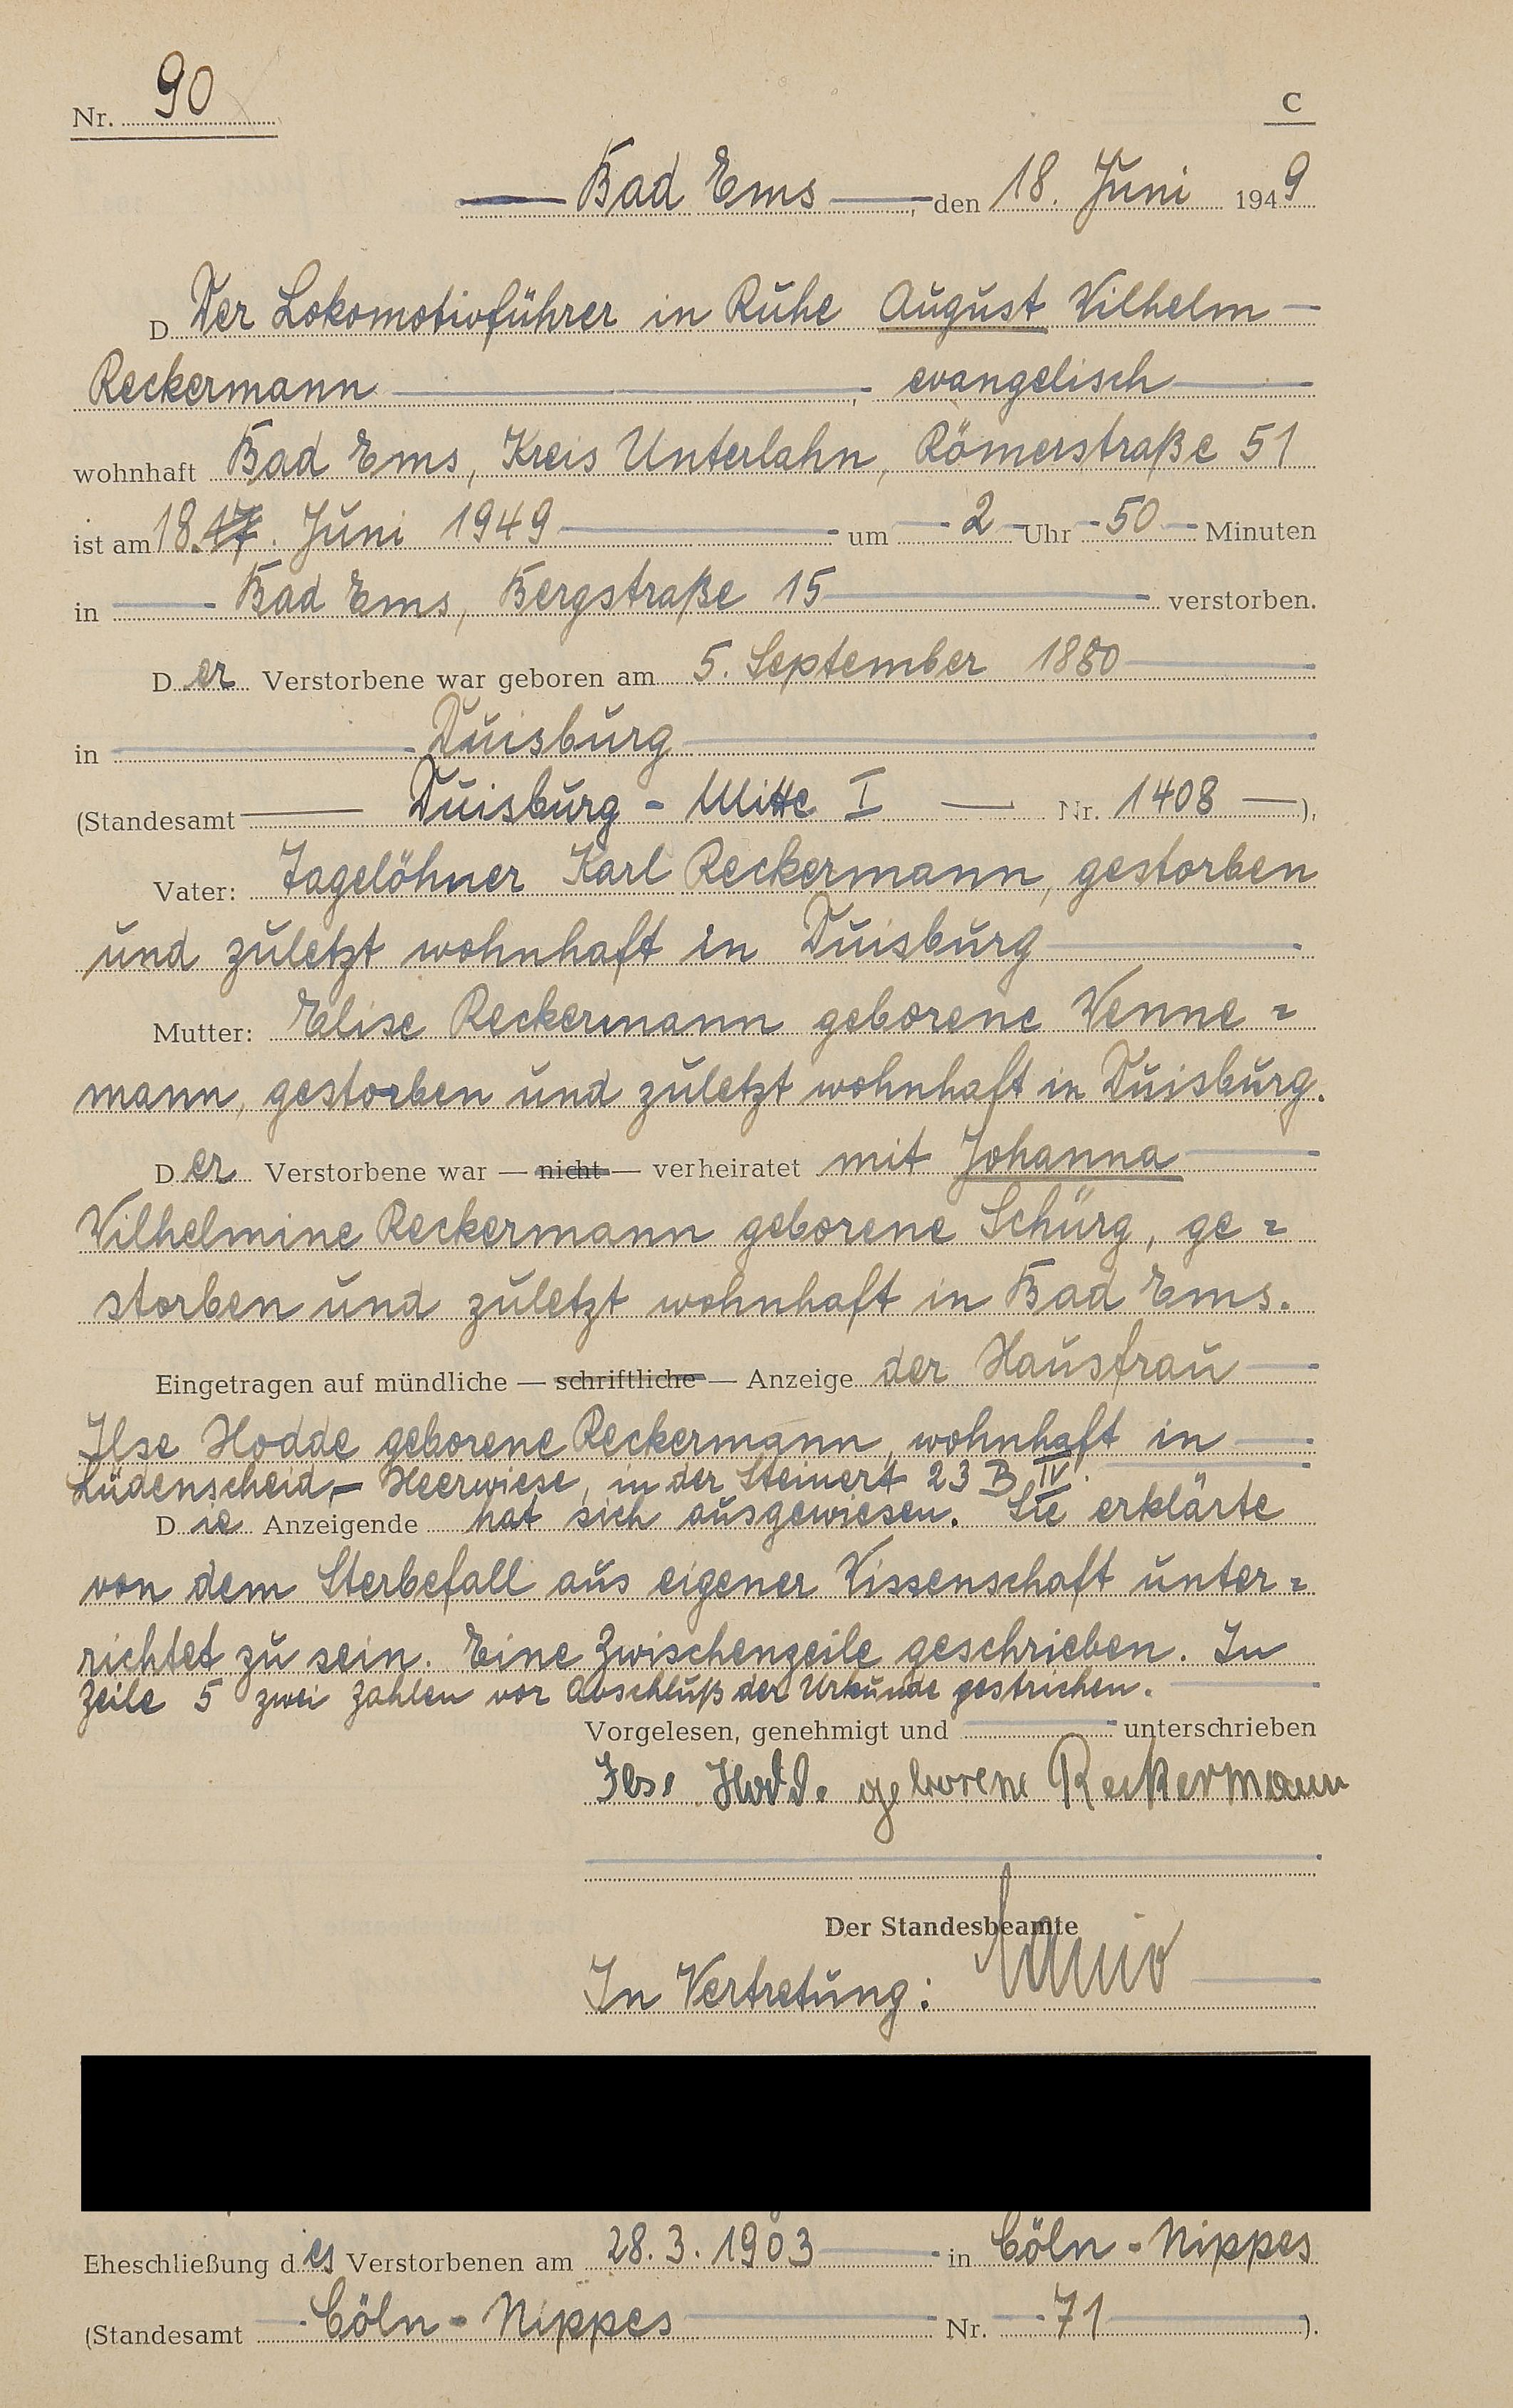 Nr. 90
C
Bad Ems, den 18. Juni 1949
D Der Lokomotivführer in Ruhe August Wilhelm
Reckermann, evangelisch
wohnhaft Bad Ems, Kreis Unterlahn, Römerstraße 51
ist am 18. 17. Juni 1949 um 2 Uhr 50 Minuten
in Bad Ems, Bergstraße 15 verstorben.
Der Verstorbene war geboren am 5. September 1880
in Duisburg
(Standesamt Duisburg - Mitte I Nr. 1408),
Vater: Tagelöhner Karl Reckermann, gestorben
und zuletzt wohnhaft in Duisburg
Mutter: Elise Reckermann geborene Venne=
mann, gestorben und zuletzt wohnhaft in Duisburg.
Der Verstorbene war — nicht — verheiratet mit Johanna
Wilhelmine Reckermann geborene Schürg, ge=
storben und zuletzt wohnhaft in Bad Ems.
Eingetragen auf mündliche — schriftliche — Anzeige der Hausfrau
Ilse Hodde geborene Reckermann, wohnhaft in
Lüdenscheid - Heerwiese, in der Steinert 23 B IV.
Die Anzeigende hat sich ausgewiesen. Sie erklärte
von dem Sterbefall aus eigener Wissenschaft unter=
richtet zu sein. Eine Zwischenzeile geschrieben. In
Zeile 5 zwei Zahlen vor Abschluß der Urkunde gestrichen.
Vorgelesen, genehmigt und unterschrieben
Ilse Hodde geborene Reckermann
Der Standesbeamte
In Vertretung:
Eheschließung des Verstorbenen am 28.3.1903 in Cöln - Nippes
(Standesamt Cöln - Nippes Nr. 71).